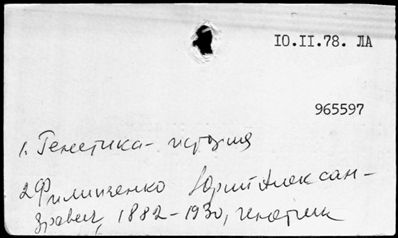 10.II.78. ЛА
965597
1. Генетика - история
2. Филипченко Юрий Алексан-
дрович, 1882-1930, генетик